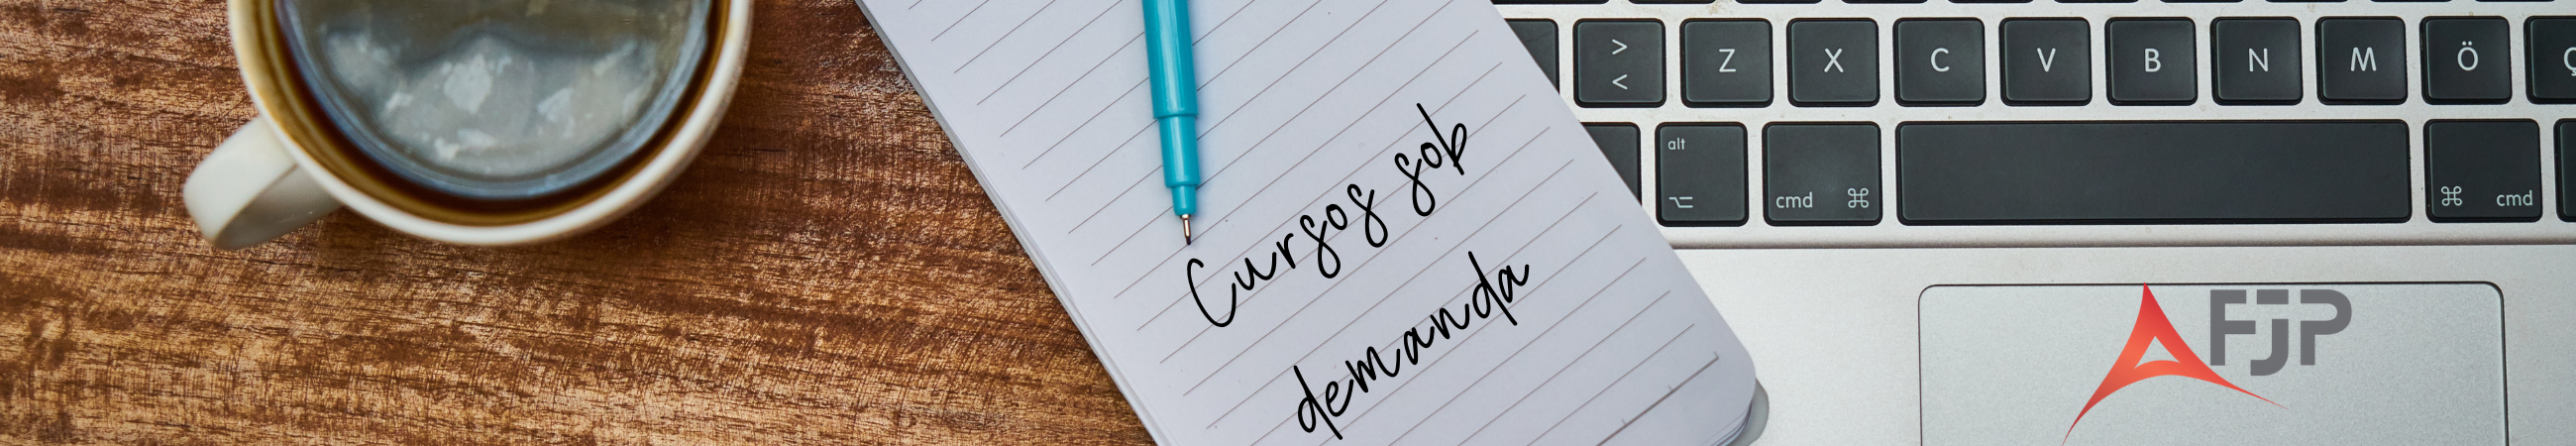 Cursos sob
demanda
>
<
Z X C V B N M Ö
alt
cmd ⌘
⌘ cmd
FJP